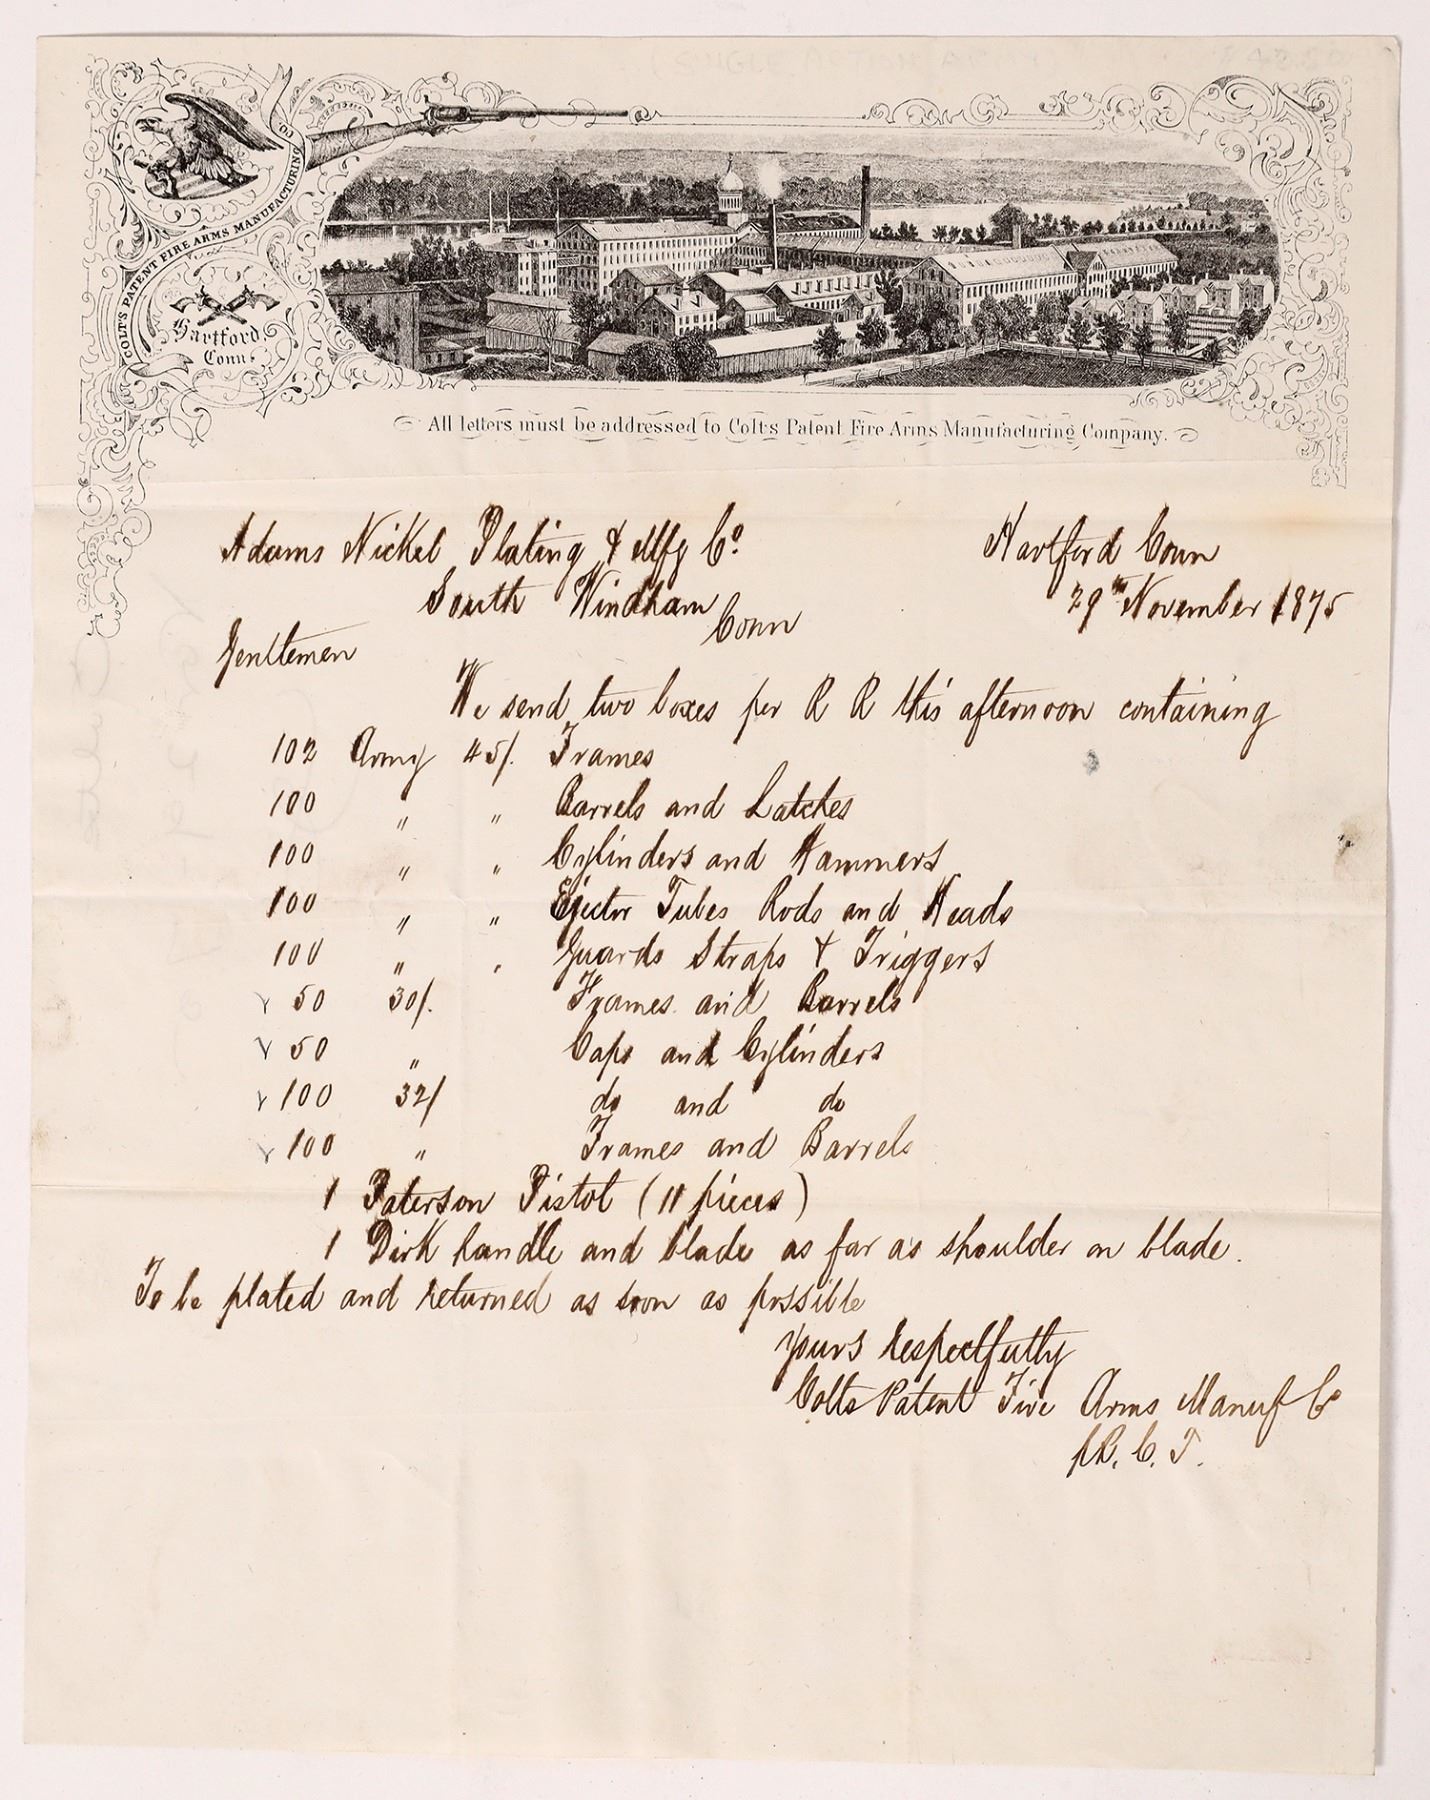 COLT'S PATENT FIRE ARMS MANUFACTURING CO
Hartford,
Conn.
All letters must be addressed to Colt's Patent Fire Arms Manufacturing Company.
Adams Nickel Plating & Mfg Co.
Hartford Conn
South Windham
29th November 1875
Conn
Gentlemen
We send two boxes per R R this afternoon containing
102 Army 45/. Frames
100 " " Barrels and Latches
100 " " Cylinders and Hammers
100 " " Ejector Tubes Rods and Heads
100 " " Guards Straps & Triggers
50 30/. Frames and Barrels
50 " Caps and Cylinders
100 32/ do and do
100 " Frames and Barrels
1 Paterson Pistol (11 pieces)
1 Dirk handle and blade as far as shoulder on blade.
To be plated and returned as soon as possible
Yours respectfully
Colts Patent Fire Arms Manuf Co
C. T.